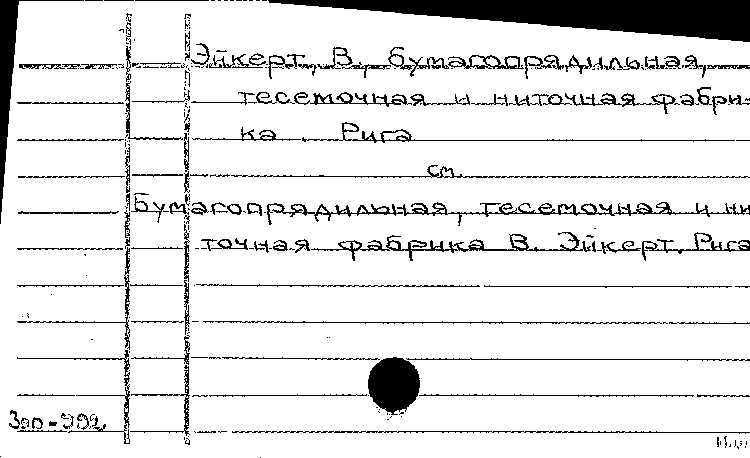 Эйкерт, В., бумагопрядильная,
тесемочная и ниточная фабри-
ка. Рига
см.
Бумагопрядильная, тесемочная и ни
точная фабрика В. Эйкерт. Рига
Зар-992